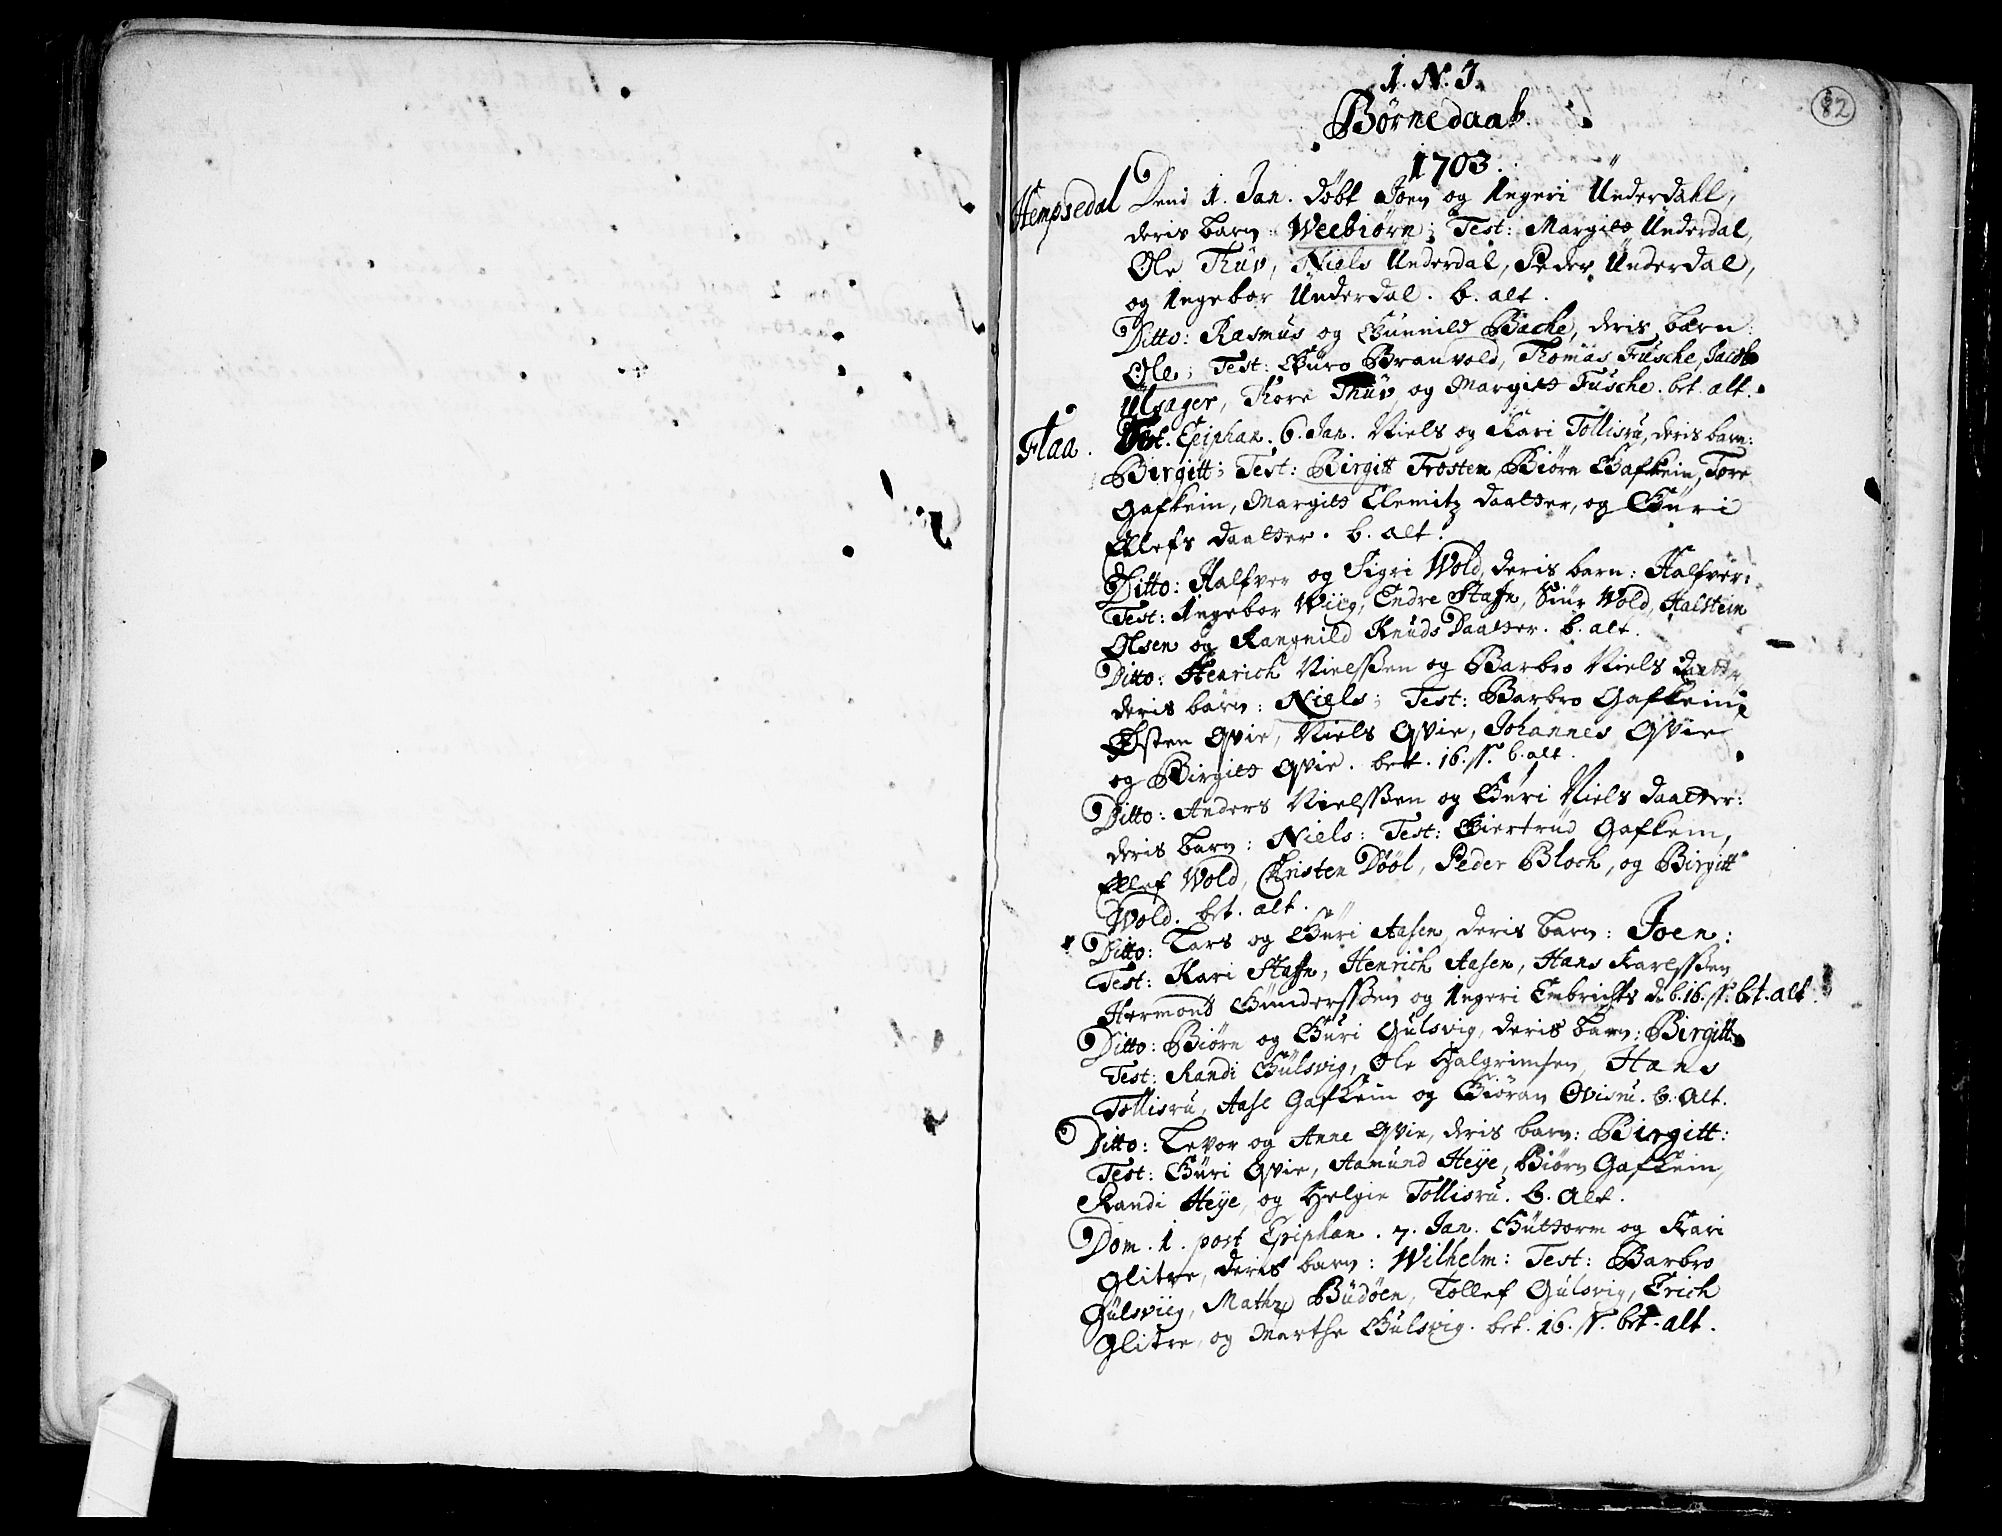 82
I. N. J.
Børnedaab.
1703.
Hempsedal Dend 1. Jan. døbt Joen og Ingeri Ünderdahl,
deris barn: Weebiørn; Test: Margitt Ünderdal,
Ole Thüv, Niels Ünderdal, Peder Ünderdal,
og Ingebor Ünderdal. b. alt.
Ditto: Rasmus og Gunnild Bache, deris barn:
Ole; Test: Guro Branvold, Thomas Füsche, Jacob
Ulsager, Thore Thüv og Margitt Füsche. bet. alt.
Flaa. Fest. Epiphan. 6. Jan. Niels og Kari Tollisrü, deris barn:
Birgitt; Test: Birgitt Trosten, Biørn Gafkein, Tore
Gafkein, Margitt Clemitz daatter, og Güri
Ellefs daatter. b. alt.
Ditto: Halfver og Sigri Wold, deris barn: Halfver:
Test: Ingebor Wiig, Endre Stafn, Siür Wold, Halstein
Olsen og Rangnild Knuds Daatter. b. alt.
Ditto: Henrich Nielsßen og Barbro Niels daatter
deris barn: Niels; Test: Barbro Gafkein,
Østen Qvie, Niels Qvie, Johannes Qvie
og Birgitt Qvie. bet. 16. ß. b. alt.
Ditto: Anders Nielsßen og Güri Niels daatter:
deris barn: Niels: Test: Giertrüd Gafkein,
Ellef Wold, Christen Døøl, Peder Bloch, og Birgitt
Wold. bet. alt.
Ditto: Lars og Güri Aasen, deris barn: Joen:
Test: Kari Stafn, Henrich Aasen, Hans Karlsßen,
Hermond Gündersßen og Ingeri Embrichts d. b. 16. ß. bet. alt.
Ditto: Biørn og Güri Gulsvig, deris barn: Birgitt
Test: Randi Gülsvig, Ole Halgrimsen, Hans
Tollisrü, Aase Gafkein og Giøran Qvisrü. b. alt.
Ditto: Levor og Anne Qvie, deris barn: Birgitt:
Test: Güri Qvie, Aamund Heye, Biørn Gafkein,
Randi Heye, og Helgie Tollisrü. b. alt.
Dom. 1. post Epiphan. 7. Jan. Güttorm og Kari
Glitre, deris barn: Wilhelm: Test: Barbro
Gülsviig, Mathz Büdøen, Tollef Gülsvig, Erich
Glitre, og Marthe Gulsvig. bet. 16. ß. bet. alt.